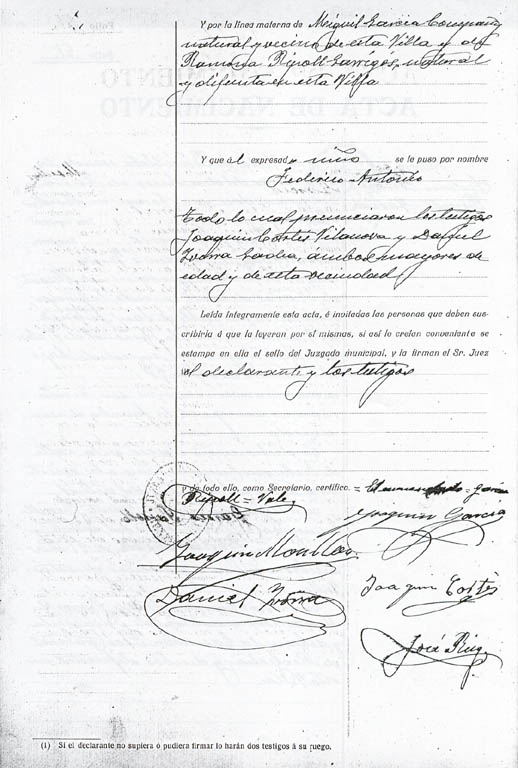 Y por la línea materna de Miguel Garcia Company
natural y vecino de esta Villa y de
Ramona Ripoll Garrigós, natural
y difunta en esta Villa
Y que ál expresado niño se le puso por nombre
Federico Antonio
Todo lo cual presenciaron los testigos
Joaquin Cortés Vilanova y Daniel
ambos mayores de
edad y de esta vecindad
Leída íntegramente esta acta, é invitadas las personas que deben sus-
cribirla á que la leyeran por sí mismas, si así lo creían conveniente se
estampa en ella el sello del Juzgado municipal, y la firman el Sr. Juez
el declarante y los testigos
y de todo ello, como Secretario, certifico. = El enmendado =
Ripoll = Vale
Joaquin Garcia
Joaquin
Joaquin Cortés
Daniel
José Puig
(1) Si el declarante no supiera ó pudiera firmar lo harán dos testigos á su ruego.